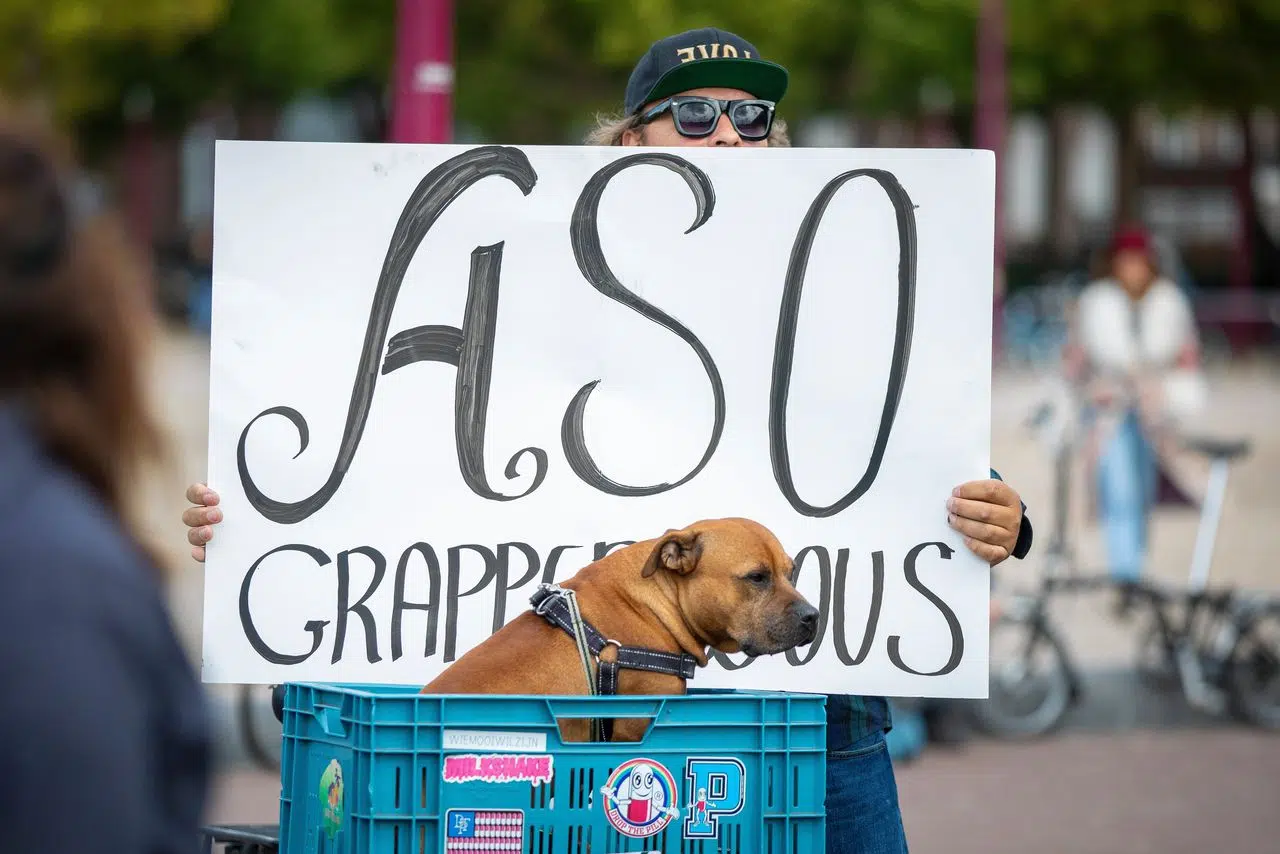 LOVE
ASO
GRAPPE OUS
WIEMOOIWILZIJN
MILKSHAKE
DROP THE PILL
P